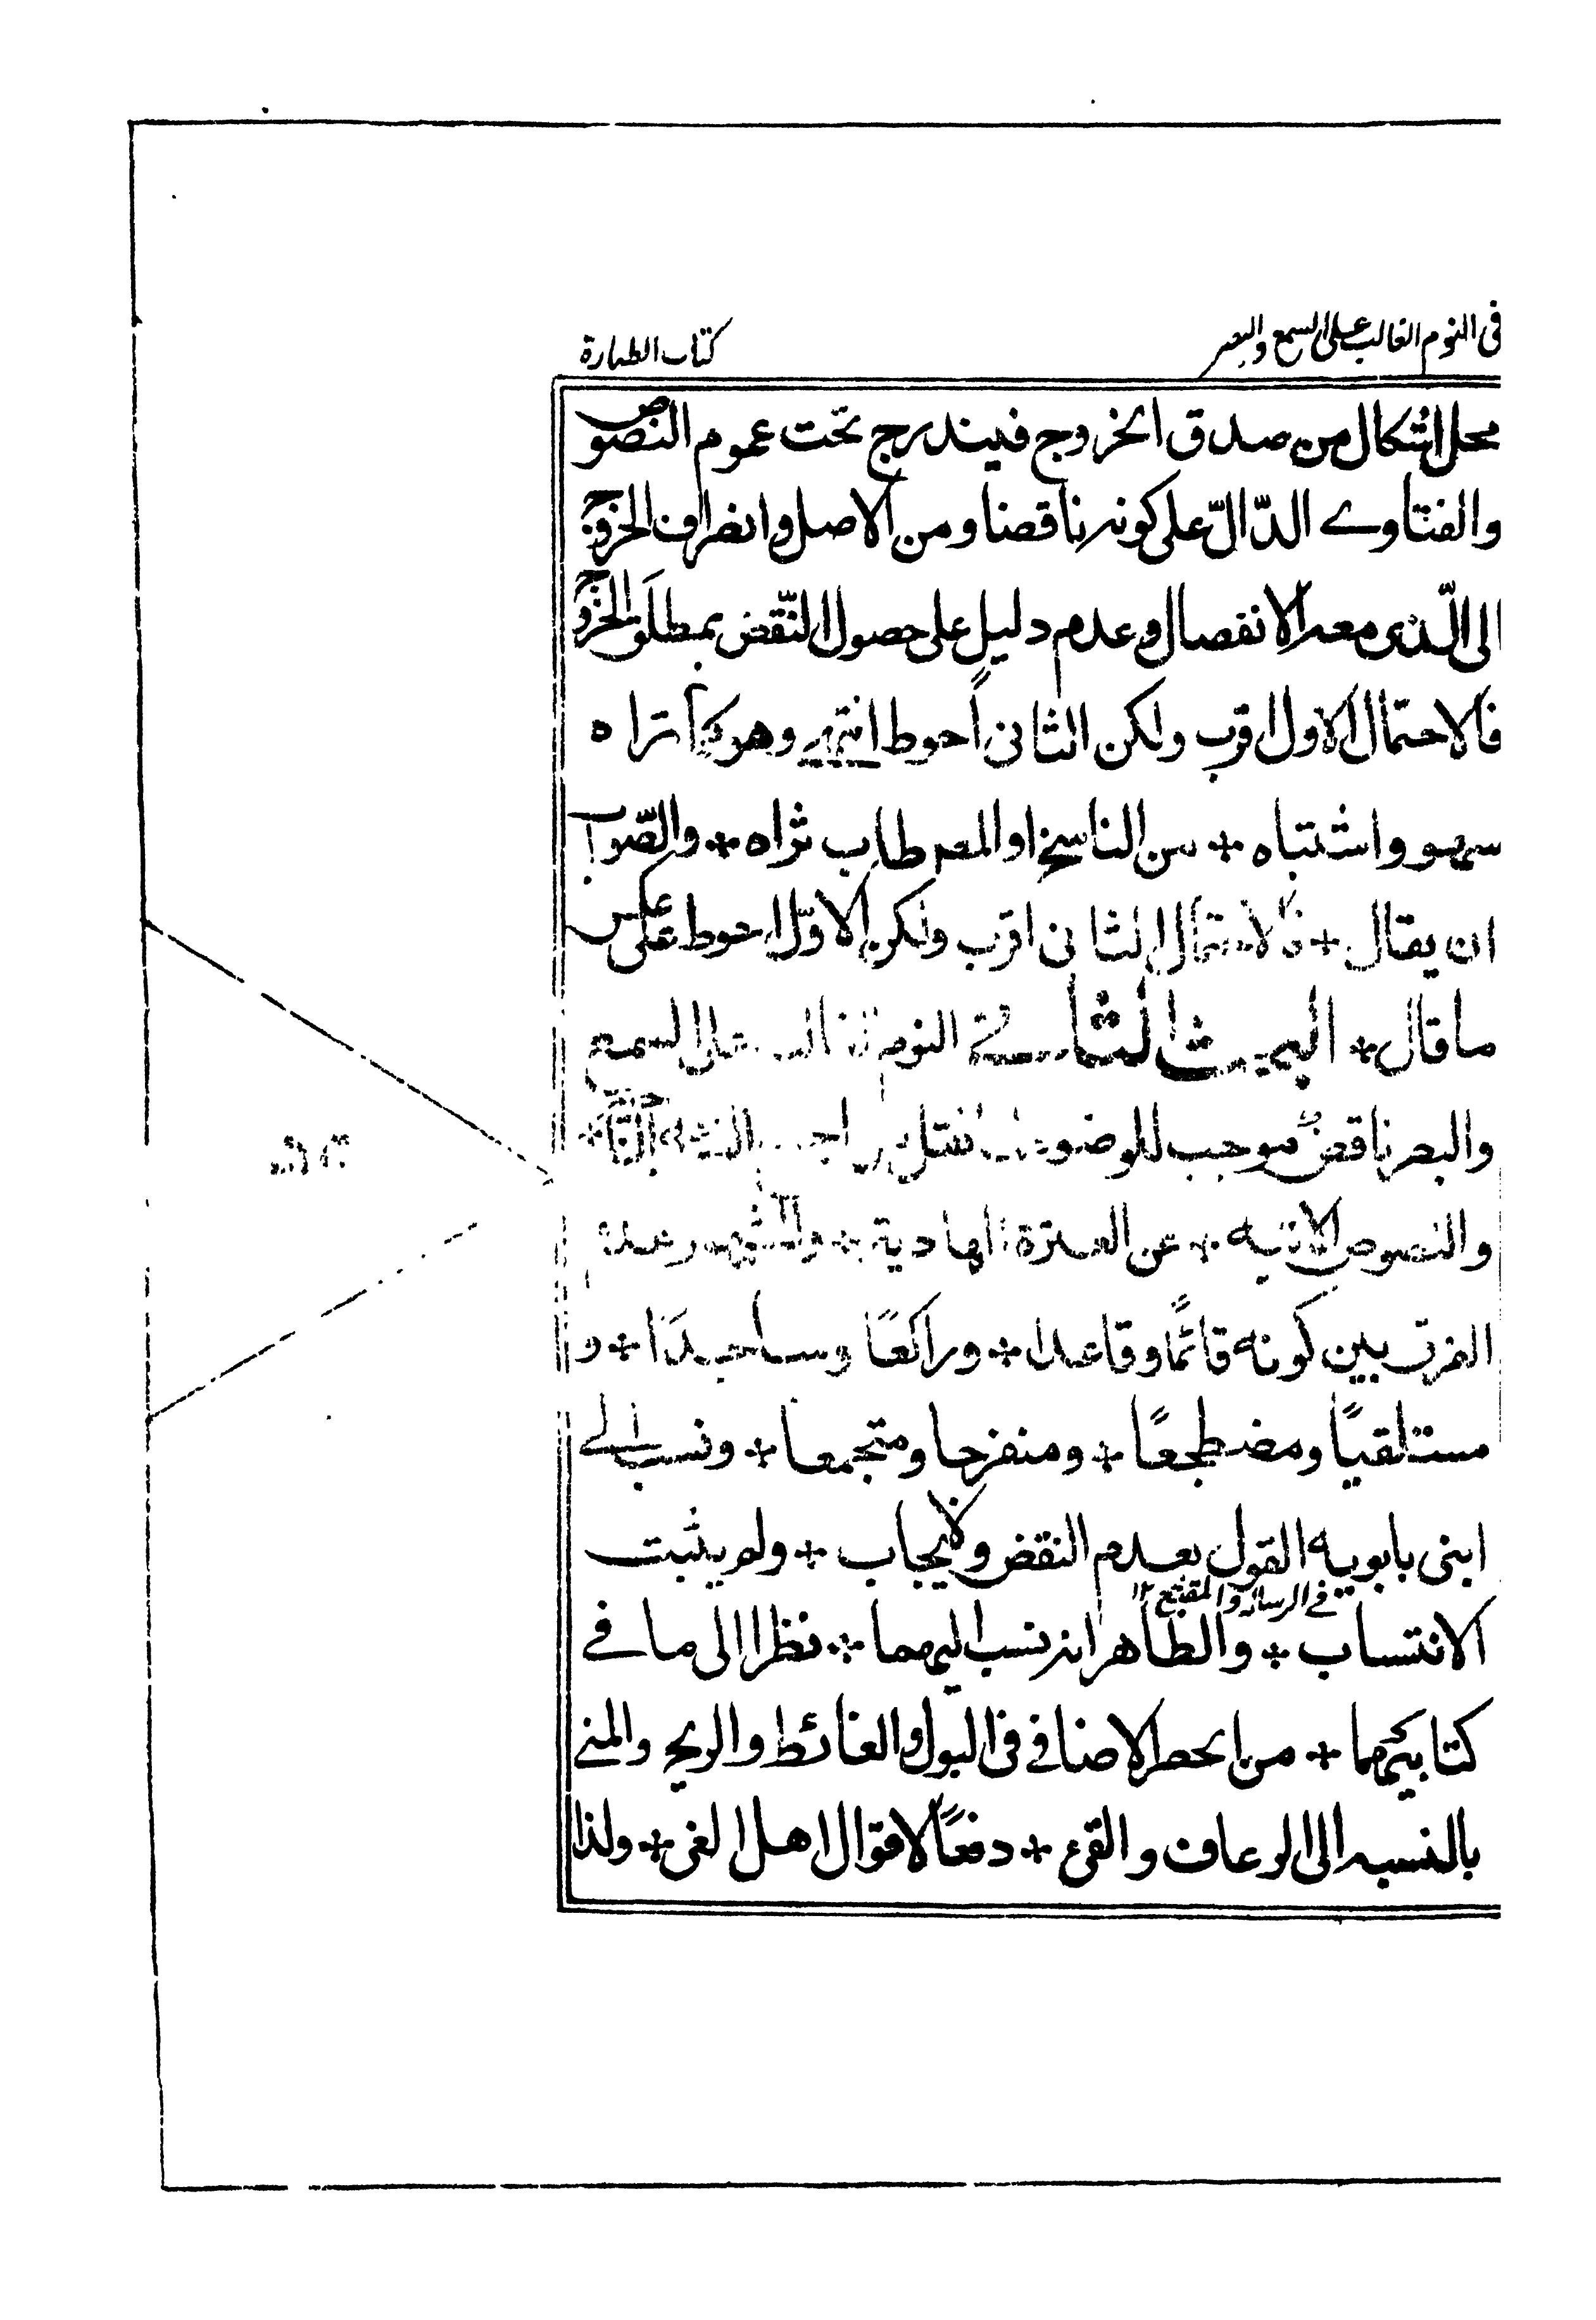 في النوم الغالب على السمع والبصر
كتاب الطهارة
محل اشكال من صدق الخروج فيندرج تحت عموم النصوص
والفتاوے الدّالّ على كونه ناقضا ومن الاصل وانصراف الخروج
الى الّذى معه الانفصال وعدم دليل على حصول النّقض بمطلق الخروج
فالاحتمال الاول اقرب ولكن الثانى احوط انتهى وهو كما تراه
سهو واشتباه * من الناسخ او المص طاب ثراه * والصّواب
ان يقال * فالاحتمال الثانى اقرب ولكن الاوّل احوط على عكس
ما قال * البحث الثانے فے النوم الغالب على السمع
والبصر ناقض موجب للوضوء
والنصوص الاتيه * عن العترة الهادية * والمشهور عدم
الفرق بين كونه قائمًا وقاعدا * وراكعًا وساجدًا * و
مستلقيًا ومضطجعًا * ومنفرجا ومتجمعا * ونسب الے
ابنى بابويه القول بعدم النقض ولايجاب * ولم يثبت
فے الرساله والمقنع ١٢
الانتساب * والظاهر انه نسب اليهما * نظرا الى ما فے
كتابيهما * من الحصر الاضافے فى البول والغائط والريح والمنے
بالنسبه الى الرعاف والقىء * دفعًا لاقوال اهل الغى * ولذا